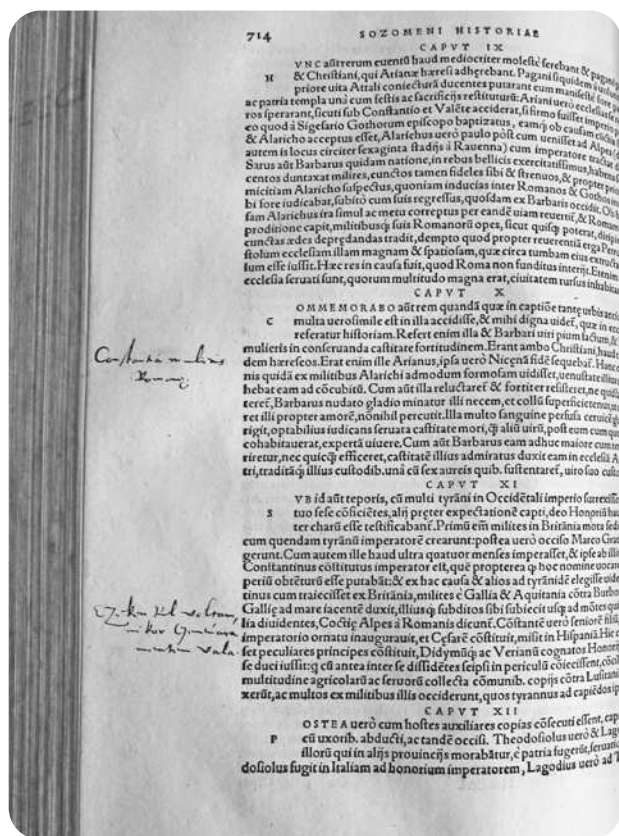 714 SOZOMENI HISTORIAE
CAPVT IX
N VNC aūt rerum euentū haud mediocriter molestè ferebant & pagani
& Christiani, qui Arianæ hæresi adhęrebant. Pagani siquidem
priore uita Attali coniecturā ducentes putarant eum manifestè
ac patria templa unà cum festis ac sacrificijs restituturū: Ariani uerò
ros sperarant, sicuti sub Constantio et Valēte acciderat, si firmo fuisset imperio
eo quod à Sigesario Gothorum episcopo baptizatus,
& Alaricho acceptus esset, Alarichus uerò paulo pòst cum uenisset ad Alpes
autem is locus circiter sexaginta stadijs à Rauenna) cum imperatore
Sarus aūt Barbarus quidam natione, in rebus bellicis exercitatissimus, habens
centos duntaxat milites, cunctos tamen fideles sibi & strenuos, & propter
micitiam Alaricho suspectus, quoniam inducias inter Romanos & Gothos
bi fore iudicabat, subitò cum suis regressus, quosdam ex Barbaris occidit. Ob
sam Alarichus ira simul ac metu correptus per eandē uiam reuertit̄, & Romam
proditione capit, militibusq; suis Romanorū opes, sicut quisq; poterat,
cunctas ædes deprędandas tradit, dempto quod propter reuerentiā erga Petrū
stolum ecclesiam illam magnam & spatiosam, quæ circa tumbam eius extructa
lum esse iussit. Hæc res in causa fuit, quod Roma non funditus interijt. Etenim
ecclesia seruati sunt, quorum multitudo magna erat, ciuitatem rursus
CAPVT X
C OMMEMORABO aūt rem quandā quæ in captiōe tantę urbis accidit
multa uerosimile est in illa accidisse, & mihi digna uidet̄, quæ in
referatur historiam. Refert enim illa & Barbari uiri pium factum, &
mulieris in conseruanda castitate fortitudinem. Erant ambo Christiani, haud
dem hæreseos. Erat enim ille Arianus, ipsa uerò Nicęnā fidē sequebat̄. Hanc
nis quidā ex militibus Alarichi admodum formosam uidisset, uenustate illius
hebat eam ad cōcubitū. Cum aūt illa reluctaret̄ & fortiter resisteret, ne quid
teret̄, Barbarus nudato gladio minatur illi necem, et collū superficietenus,
ret illi propter amorē, nōnihil percutit. Illa multo sanguine perfusa ceruicē
rigit, optabilius iudicans seruata castitate mori, q̄ aliū uirū, post eum cum quo
cohabitauerat, expertā uiuere. Cum aūt Barbarus eam adhuc maiore cum
riretur, nec quicq̄ efficeret, castitatē illius admiratus duxit eam in ecclesiā
tri, traditāq; illius custodib. unà cū sex aureis quib. sustentaret̄, uiro suo
CAPVT XI
S VB id aūt tēporis, cū multi tyrāni in Occidētali imperio surrexissent
tuo sese cōficiētes, alij pręter expectationē capti, deo Honoriū
ter charū esse testificabant̄. Primū em̄ milites in Britānia mota
cum quendam tyrānū imperatorē crearunt: postea uerò occiso Marco
gerunt. Cum autem ille haud ultra quatuor menses imperasset, & ipse ab
Constantinus cōstitutus imperator est, quē propterea q̄ hoc nomine
periū obtēturū esse putabāt: & ex hac causa & alios ad tyrānidē elegisse
tinus cum traiecisset ex Britānia, milites è Gallia & Aquitania cōtra
Gallię ad mare iacentē duxit, illiusq; subditos sibi subiecit usq; ad mōtes
lia diuidentes, Coctię Alpes à Romanis dicunt̄. Cōstantē uerò seniorē filiū
imperatorio ornatu inaugurauit, et Cęsarē cōstituit, misit in Hispaniā. Hic
set peculiares principes cōstituit, Didymūq; ac Verianū cognatos Honorij
se duci iussit: q̄ cū antea inter se dissidētes seipsi in periculū cōiecissent,
multitudine agricolarū ac seruorū collecta cōmunib. copijs cōtra Lusitaniā
xerūt, ac multos ex militibus illis occiderunt, quos tyrannus ad capiēdos
CAPVT XII
P OSTEA uerò cum hostes auxiliares copias cōsecuti essent,
cū uxorib. abducti, ac tandē occisi. Theodosiolus uerò &
illorū qui in alijs prouincijs morabātur, è patria fugerūt,
dosiolus fugit in Italiam ad honorium imperatorem, Lagodius uerò ad
Constantia mulieris
Romanę